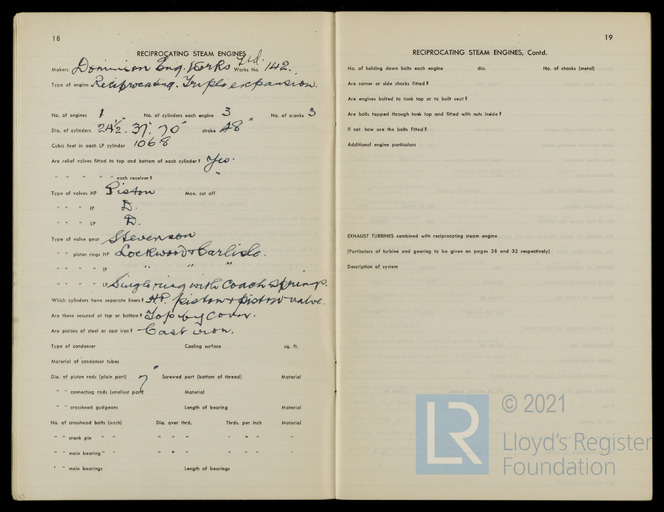 18
RECIPROCATING STEAM ENGINES
Makers Dominion Eng. Works Ltd. Works No. 142.
Type of engine Reciprocating. Triple expansion.
No. of engines 1 No. of cylinders each engine 3 No. of cranks 3
Dia. of cylinders 24½. 37. 70" stroke 48"
Cubic feet in each LP cylinder 106.8
Are relief valves fitted to top and bottom of each cylinder? Yes.
" " " " each receiver? "
Type of valves HP Piston Max. cut off
" " " IP D.
" " " LP D.
Type of valve gear Stevenson
" " piston rings HP Lockwood & Carlisle.
" " " IP " " "
" " " LP Single ring with Coach springs.
Which cylinders have separate liners? H.P. piston & piston valve.
Are these secured at top or bottom? Top by cover.
Are pistons of steel or cast iron? Cast iron.
Type of condenser Cooling surface sq. ft.
Material of condenser tubes
Dia. of piston rods (plain part) 7" Screwed part (bottom of thread) Material
" " connecting rods (smallest part) Material
" " crosshead gudgeons Length of bearing Material
No. of crosshead bolts (each) Dia. over thrd. Thrds. per inch Material
" " crank pin " " " " " " " " "
" " main bearing " " " " " " " " "
" " main bearings Length of bearings
19
RECIPROCATING STEAM ENGINES, Contd.
No. of holding down bolts each engine dia. No. of chocks (metal)
Are corner or side chocks fitted?
Are engines bolted to tank top or to built seat?
Are bolts tapped through tank top and fitted with nuts inside?
If not how are the bolts fitted?
Additional engine particulars
EXHAUST TURBINES combined with reciprocating steam engine
(Particulars of turbine and gearing to be given on pages 28 and 32 respectively)
Description of system
LR
© 2021
Lloyd's Register
Foundation